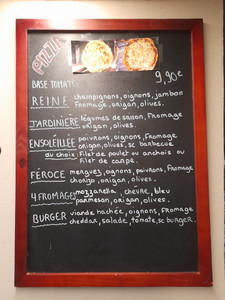 PIZZA
9,90€
BASE TOMATE
REINE champignons, oignons, jambon
fromage, origan, olives.
JARDINIÈRE légumes de saison, fromage
origan, olives.
ENSOLEILLÉE poivrons, oignons, fromage
origan, olives, sc barbecue
au choix: filet de poulet ou anchois ou
filet de canpe.
FÉROCE merguez, oignons, poivrons, fromage
chorizo, origan, olives.
4 FROMAGES mozzarella, chèvre, bleu
parmesan, origan, olives.
BURGER viande hachée, oignons, fromage
cheddar, salade, tomate, sc burger.